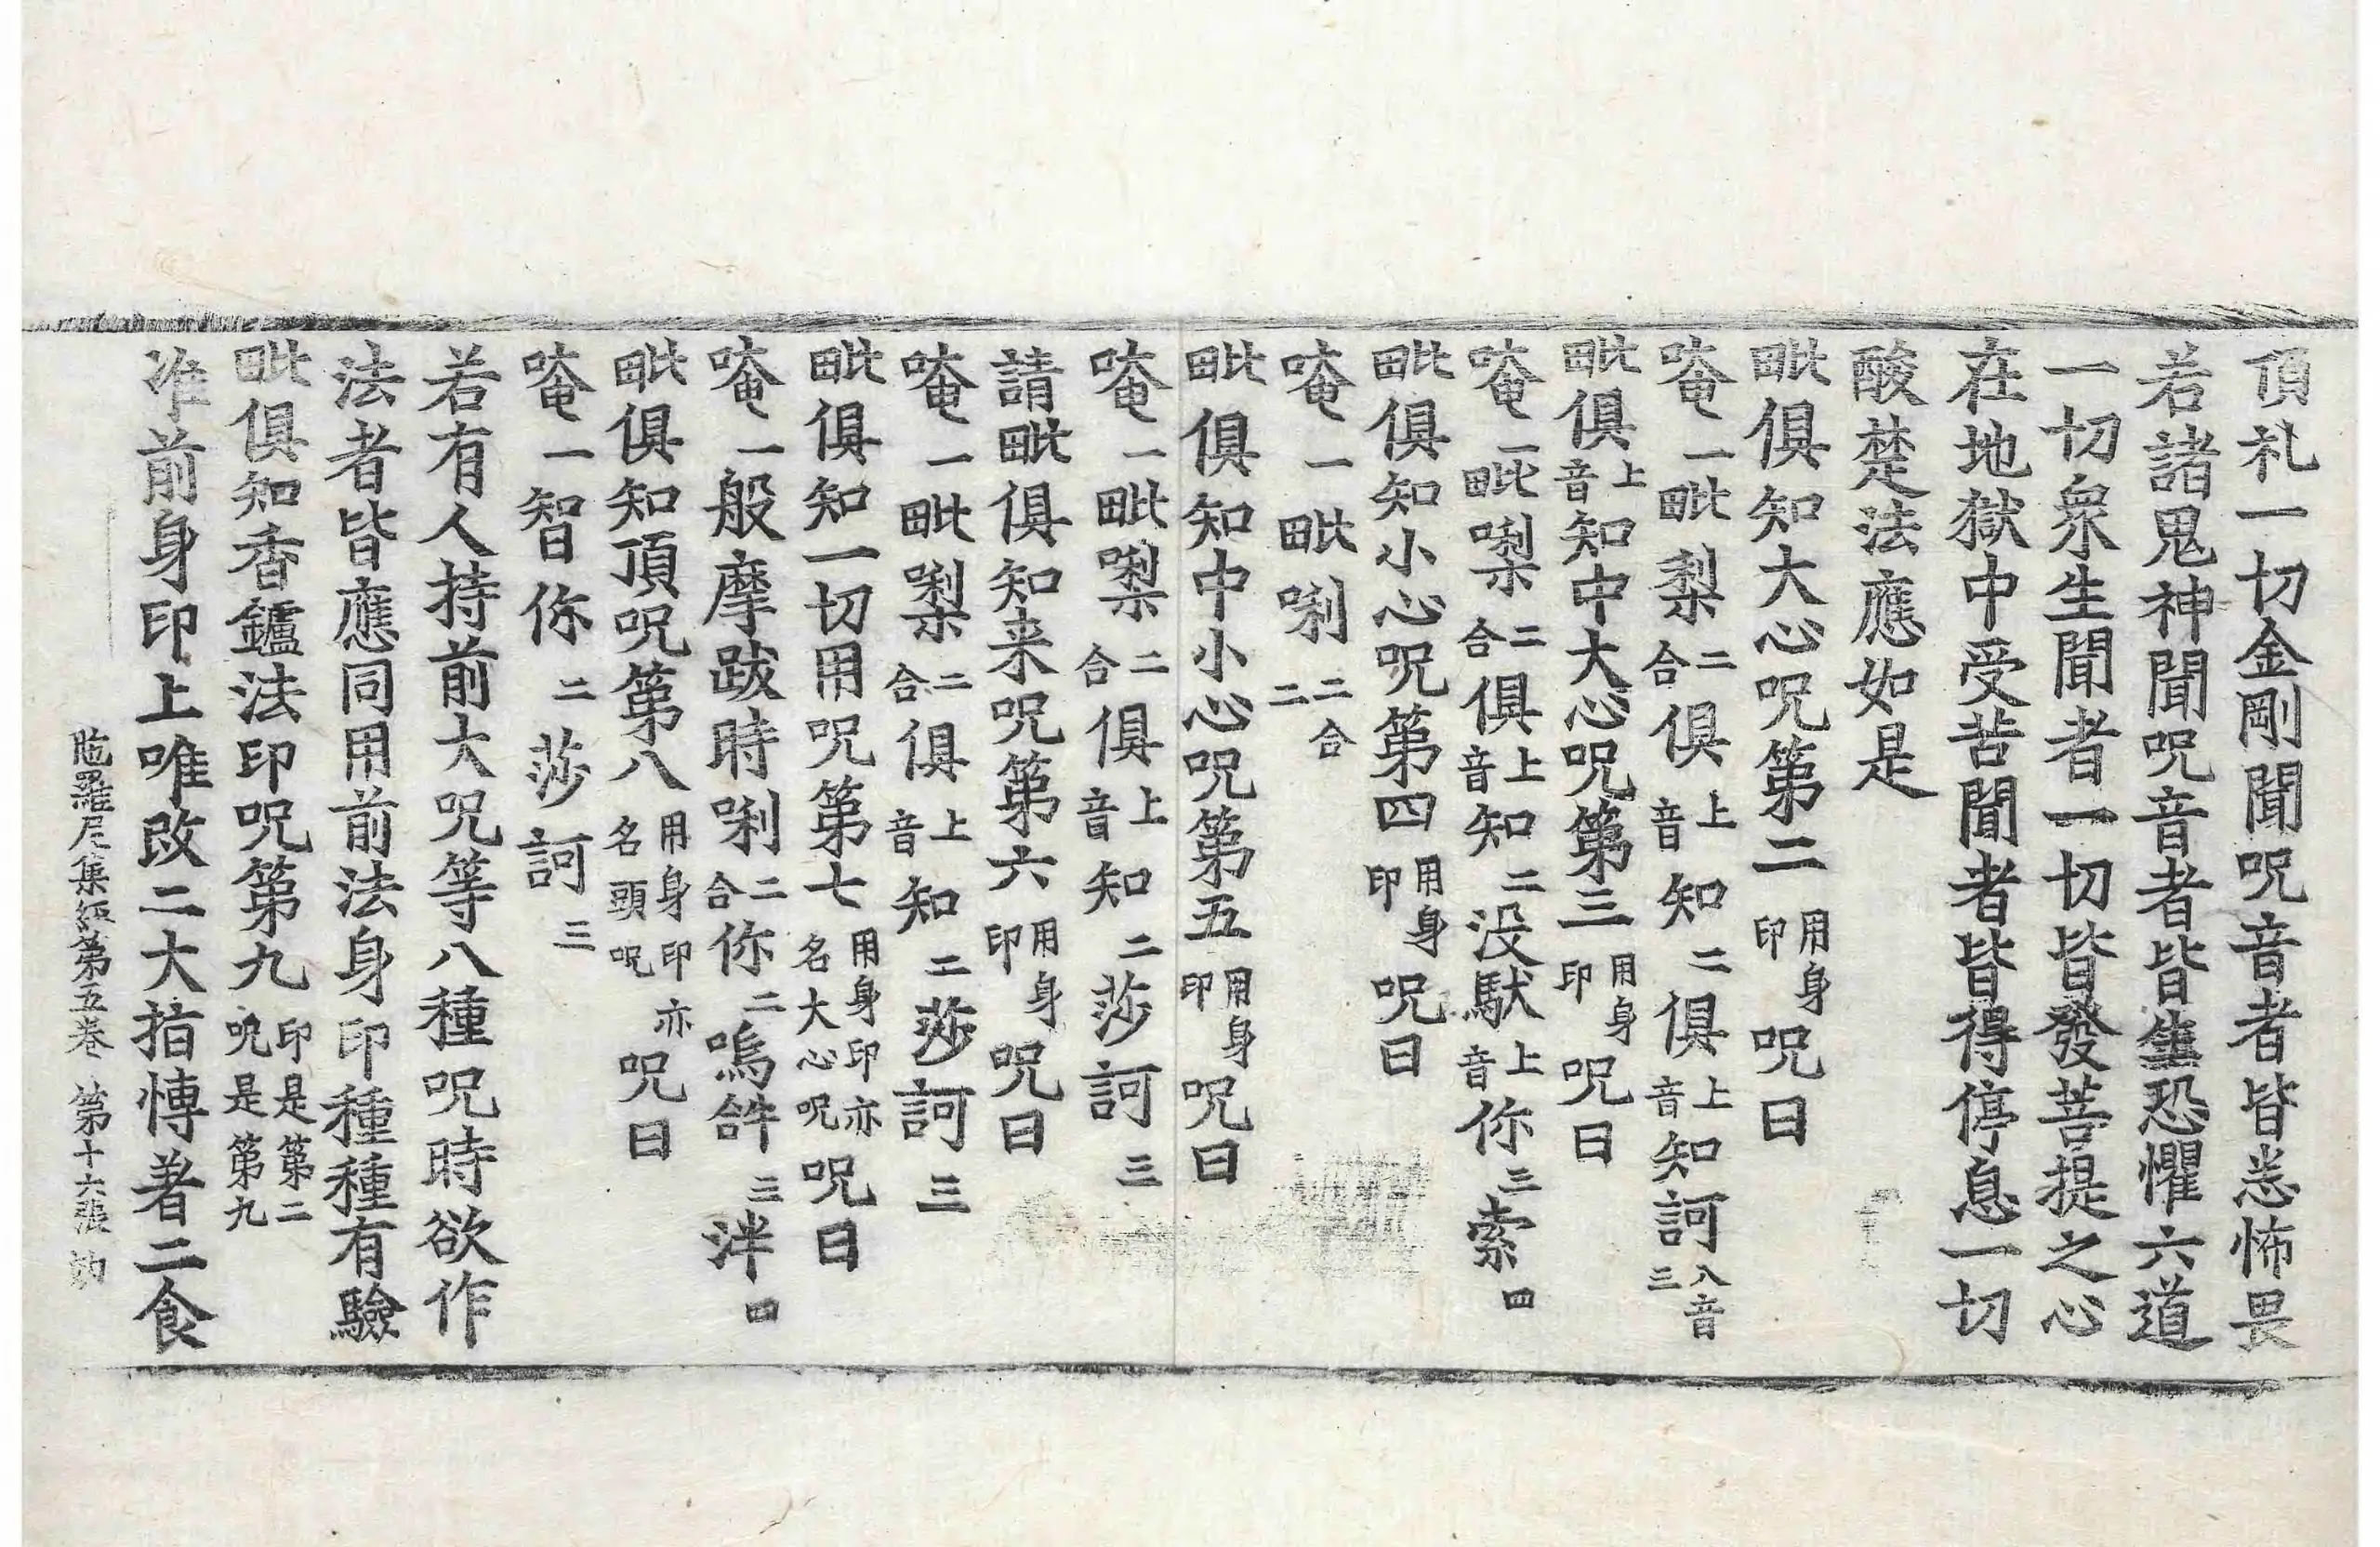 頂礼一切金剛聞呪音者皆悉怖畏
若諸鬼神聞呪音者皆生恐懼六道
一切衆生聞者一切皆發菩提之心
在地獄中受苦聞者皆得停息一切
酸楚法應如是
毗俱知大心呪第二用身印呪曰
唵一毗梨二合俱上音知二俱上音知訶八音三
毗俱上音知中大心呪第三用身印呪曰
唵一毗㗚二合俱上音知二没馱上音你三索四
毗俱知小心呪第四用身印呪曰
唵一毗唎二合二
毗俱知中小心呪第五用身印呪曰
唵一毗㗚二合俱上音知二莎訶三
請毗俱知来呪第六用身印呪曰
唵一毗㗚二合俱上音知二莎訶三
毗俱知一切用呪第七用身印亦名大心呪呪曰
唵一般摩跋時唎二合你二嗚𤙖三泮四
毗俱知頂呪第八用身印亦名頭呪呪曰
唵一智你二莎訶三
若有人持前大呪等八種呪時欲作
法者皆應同用前法身印種種有驗
毗俱知香鑪法印呪第九印是第二呪是第九
准前身印上唯改二大指慱著二食
陁羅尼集經第五卷 第十六張